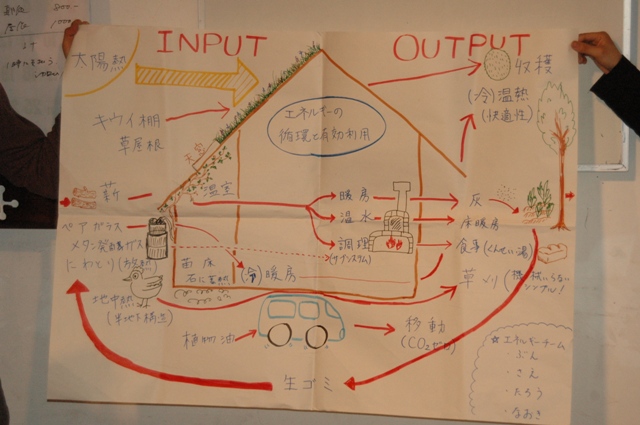 INPUT
OUTPUT
太陽熱
キウイ棚
草屋根
エネルギーの
循環と有効利用
収穫
(冷)温熱
(快適性)
天窓
温室
薪
ペアガラス
メタン発酵ガス
にわとり(お
地中熱
(半地下構造)
苗床
石に蓄熱
(冷)暖房
暖房
温水
調理
(サブシステム)
灰
床暖房
食事(くんせい、湯)
草刈り
シンプル!
植物油
移動
(CO2ゼロ)
生ゴミ
☆エネルギーチーム
・ぶん
・さえ
・たろう
・なおき